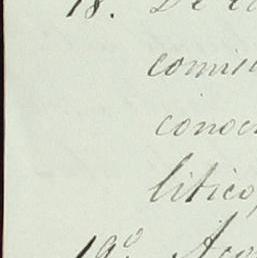 18. De
comis
conoc
litico,
19º Aco